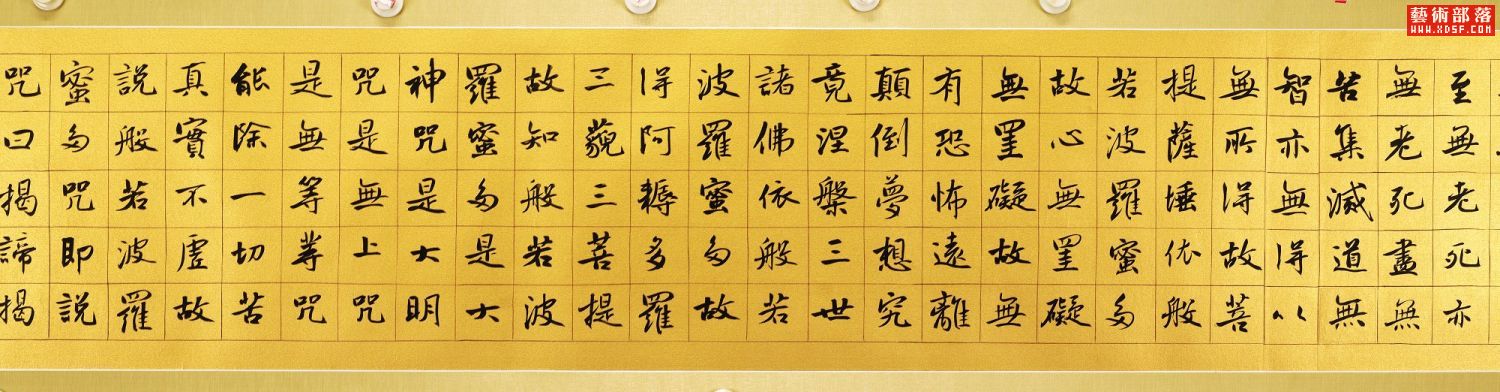 至無老死亦
無老死盡無
苦集滅道無
智亦無得以
無所得故菩
提薩埵依般
若波羅蜜多
故心無罣礙
無罣礙故無
有恐怖遠離
顛倒夢想究
竟涅槃三世
諸佛依般若
波羅蜜多故
得阿耨多羅
三藐三菩提
故知般若波
羅蜜多是大
神咒是大明
咒是無上咒
是無等等咒
能除一切苦
真實不虛故
說般若波羅
蜜多咒即說
咒曰揭諦揭
藝術部落
WWW.XDSF.COM